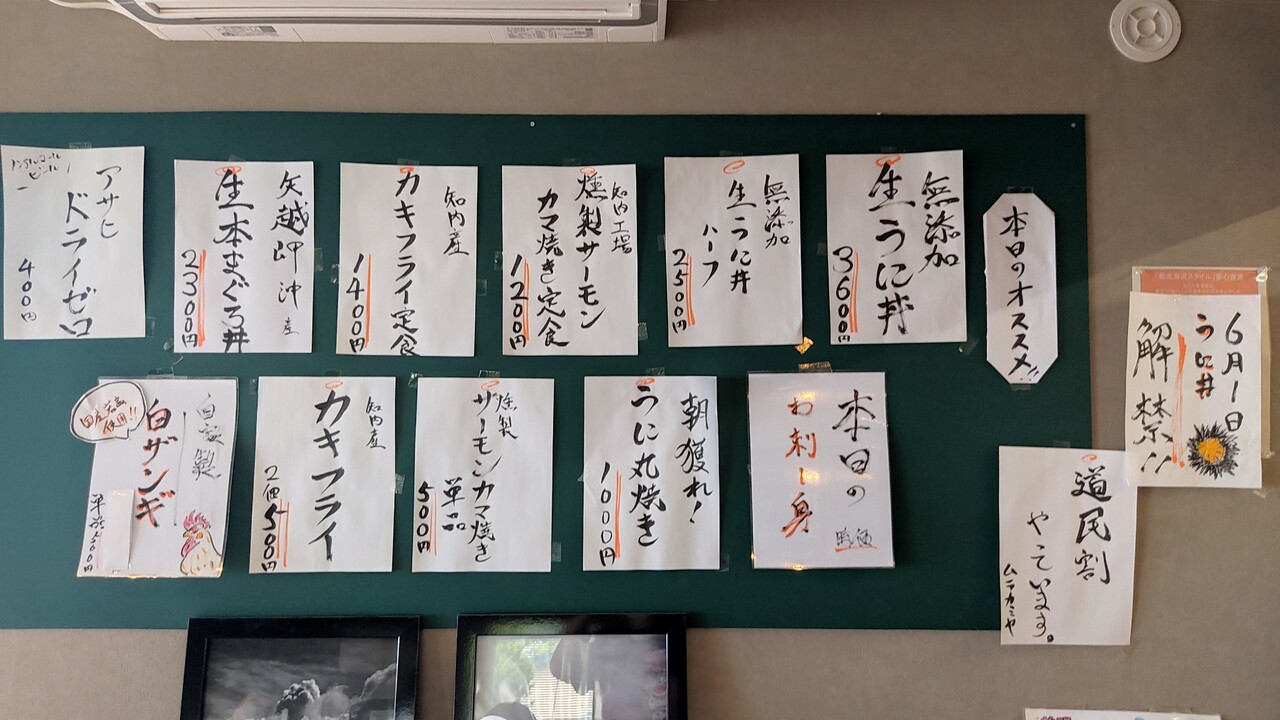 本日のオススメ!!
無添加
生うに丼
3600円
無添加
生うに丼
ハーフ
2500円
知内工場
燻製サーモン
カマ焼き定食
1200円
知内産
カキフライ定食
1400円
矢越岬沖産
生本まぐろ丼
2300円
ノンアルコール
ビール
アサヒ
ドライゼロ
400円
6月1日
うに丼
解禁!!
道民割
やっています。
ムラカミヤ
本日の
お刺し身
時価
朝獲れ!
うに丸焼き
1000円
燻製
サーモンカマ焼き
単品
500円
知内産
カキフライ
2個500円
自家製
白ザンギ
国産
使用!!
単品500円